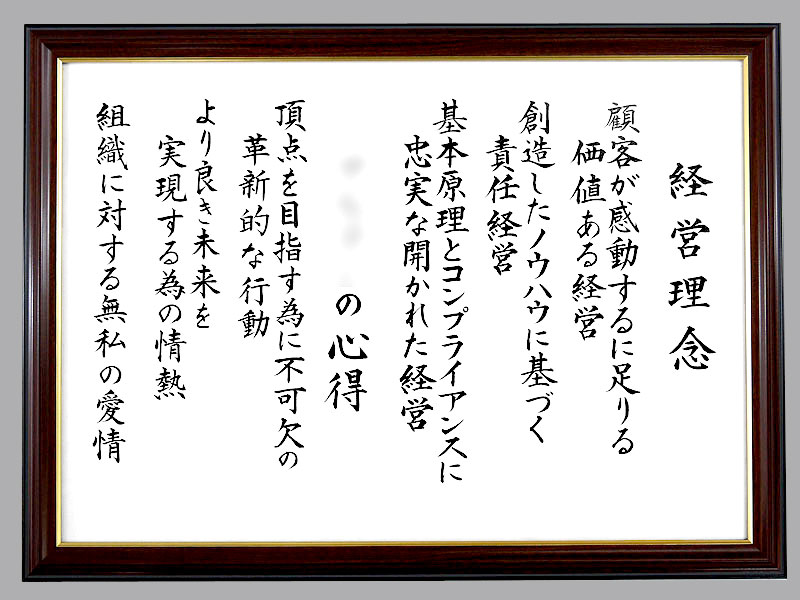 経営理念
顧客が感動するに足りる
価値ある経営
創造したノウハウに基づく
責任経営
基本原理とコンプライアンスに
忠実な開かれた経営
の心得
頂点を目指す為に不可欠の
革新的な行動
より良き未来を
実現する為の情熱
組織に対する無私の愛情